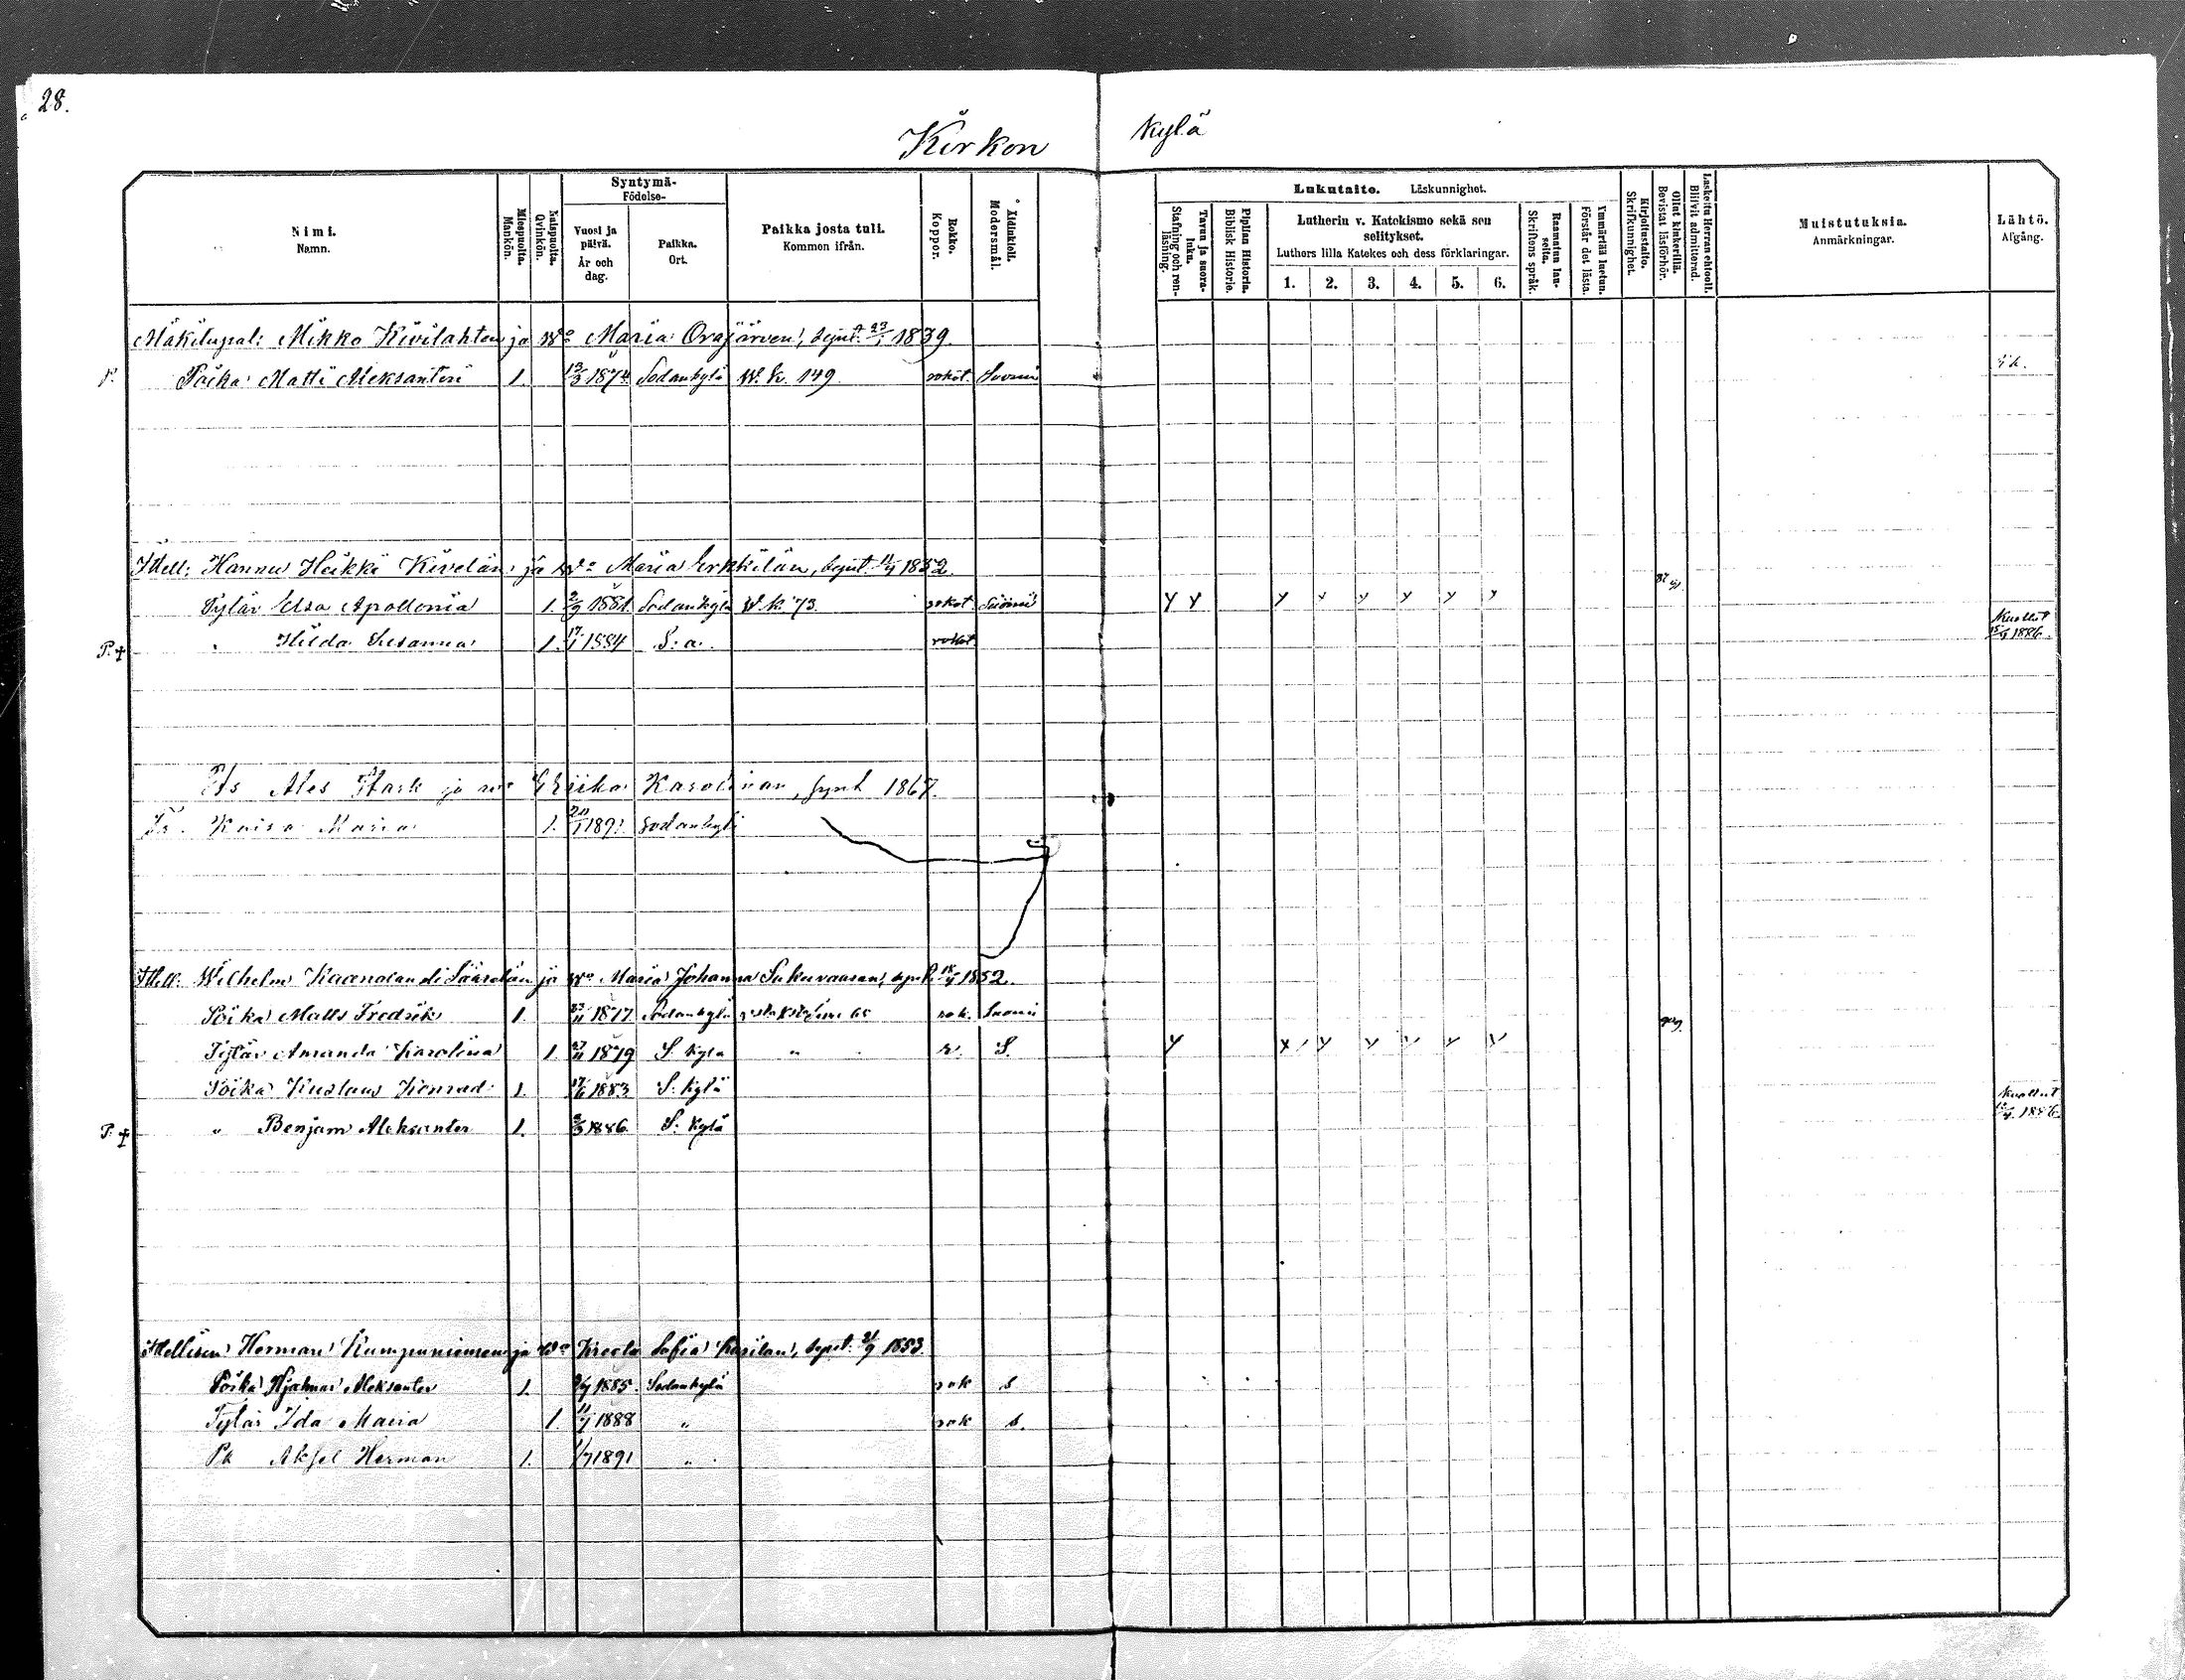 28.
Kirkon kylä
Nimi. Namn.
Miespuolta. Mankön.
Naispuolta. Qvinkön.
Syntymä- Födelse-
Vuosi ja päivä. År och dag.
Paikka. Ort.
Paikka josta tuli. Kommen ifrån.
Rokko. Koppor.
Äidinkieli. Modersmål.
Lukutaito. Läskunnighet.
Tavun ja suora-luku. Stafning och ren-läsning.
Piplian Historia. Biblisk Historie.
Lutherin v. Katekismo sekä sen selitykset.
Luthers lilla Katekes och dess förklaringar.
1. 2. 3. 4. 5. 6.
Raamatun lau-seita. Skriftens språk.
Ymmärtää luetun. Förstår det lästa.
Kirjoitustaito. Skrifkunnighet.
Ollut kinkerillä. Bevistat läsförhör.
Laskettu Herran ehtooll. Blifvit admitterad.
Muistutuksia. Anmärkningar.
Lähtö. Afgång.
Mäkitupal: Mikko Kivilahten ja Wo Maria Orajärven, synt. 23/1 1839.
P. Poika Matti Aleksanteri 1. 13/3 1874. Sodankylä W. k. 149 rokot. Suomi
Itell: Hannu Heikki Kivelän ja Wo Maria Erkkilän, synt. 1852.
Tytär Elsa Apollonia 1. 2/9 1881. Sodankylä W. k. 73. rokot Suomi y y y y y y y y
P. + " Hilda Susanna 1. 17/1 1884 S: a. rokot. Kuollut 1886.
Ales Stark ja wo Eriika Karolinan, synt 1867.
Tr. Kaisa Maria 1. 1891 Sodankylä
Itell: Wilhelm ja Wo Maria Johanna Sukuvaaran, synt. 1852.
Poika Matts Fredrik 1. 1877. Sodankylä rok. Suomi
Tytär Amanda Karolina 1. 1879 S. kylä " r. S. y y y y y y y
Poika Kustaus Konrad 1. 17/6 1883. S. kylä
P. + " Benjam Aleksanter 1. 2/3 1886 S. kylä Kuollut 1886.
Itellisen Herman Kumpuniemen ja Wo Kreeta Sofia synt. 1853.
Poika Hjalmar Aleksanter 1. 1885. Sodankylä rok s
Tytär Ida Maria 1. 11/1 1888 " rok s.
Pk Aksel Herman 1. 1/7 1891 "